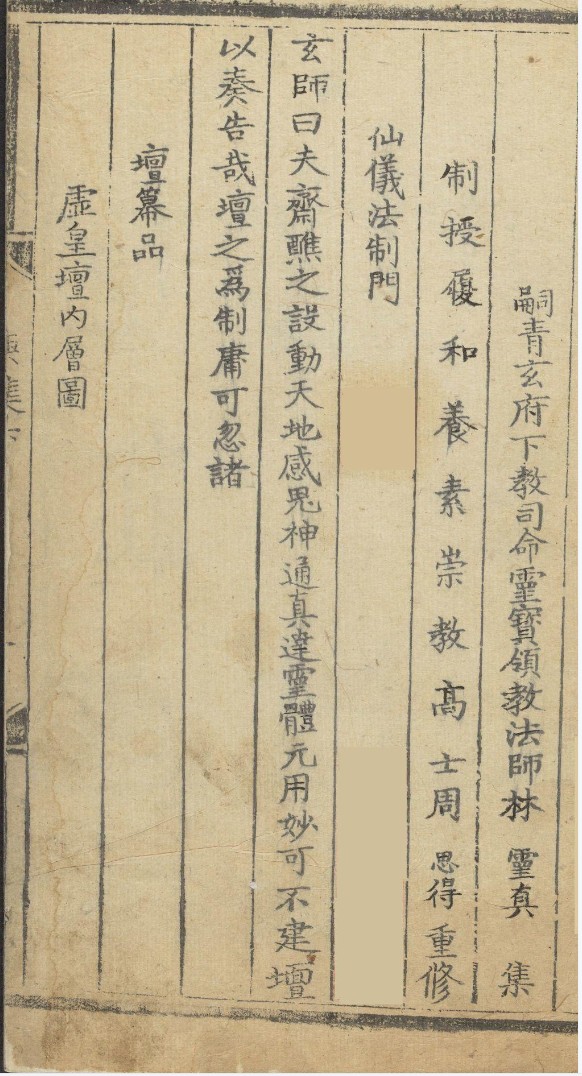 嗣青玄府下教司命靈寶領教法師林靈真集
制授履和養素崇教高士周思得重修
仙儀法制門
玄師曰夫齋醮之設動天地感鬼神通真達靈體元用妙可不建壇
以奏告哉壇之爲制庸可忽諸
壇幕品
虛皇壇内層圖